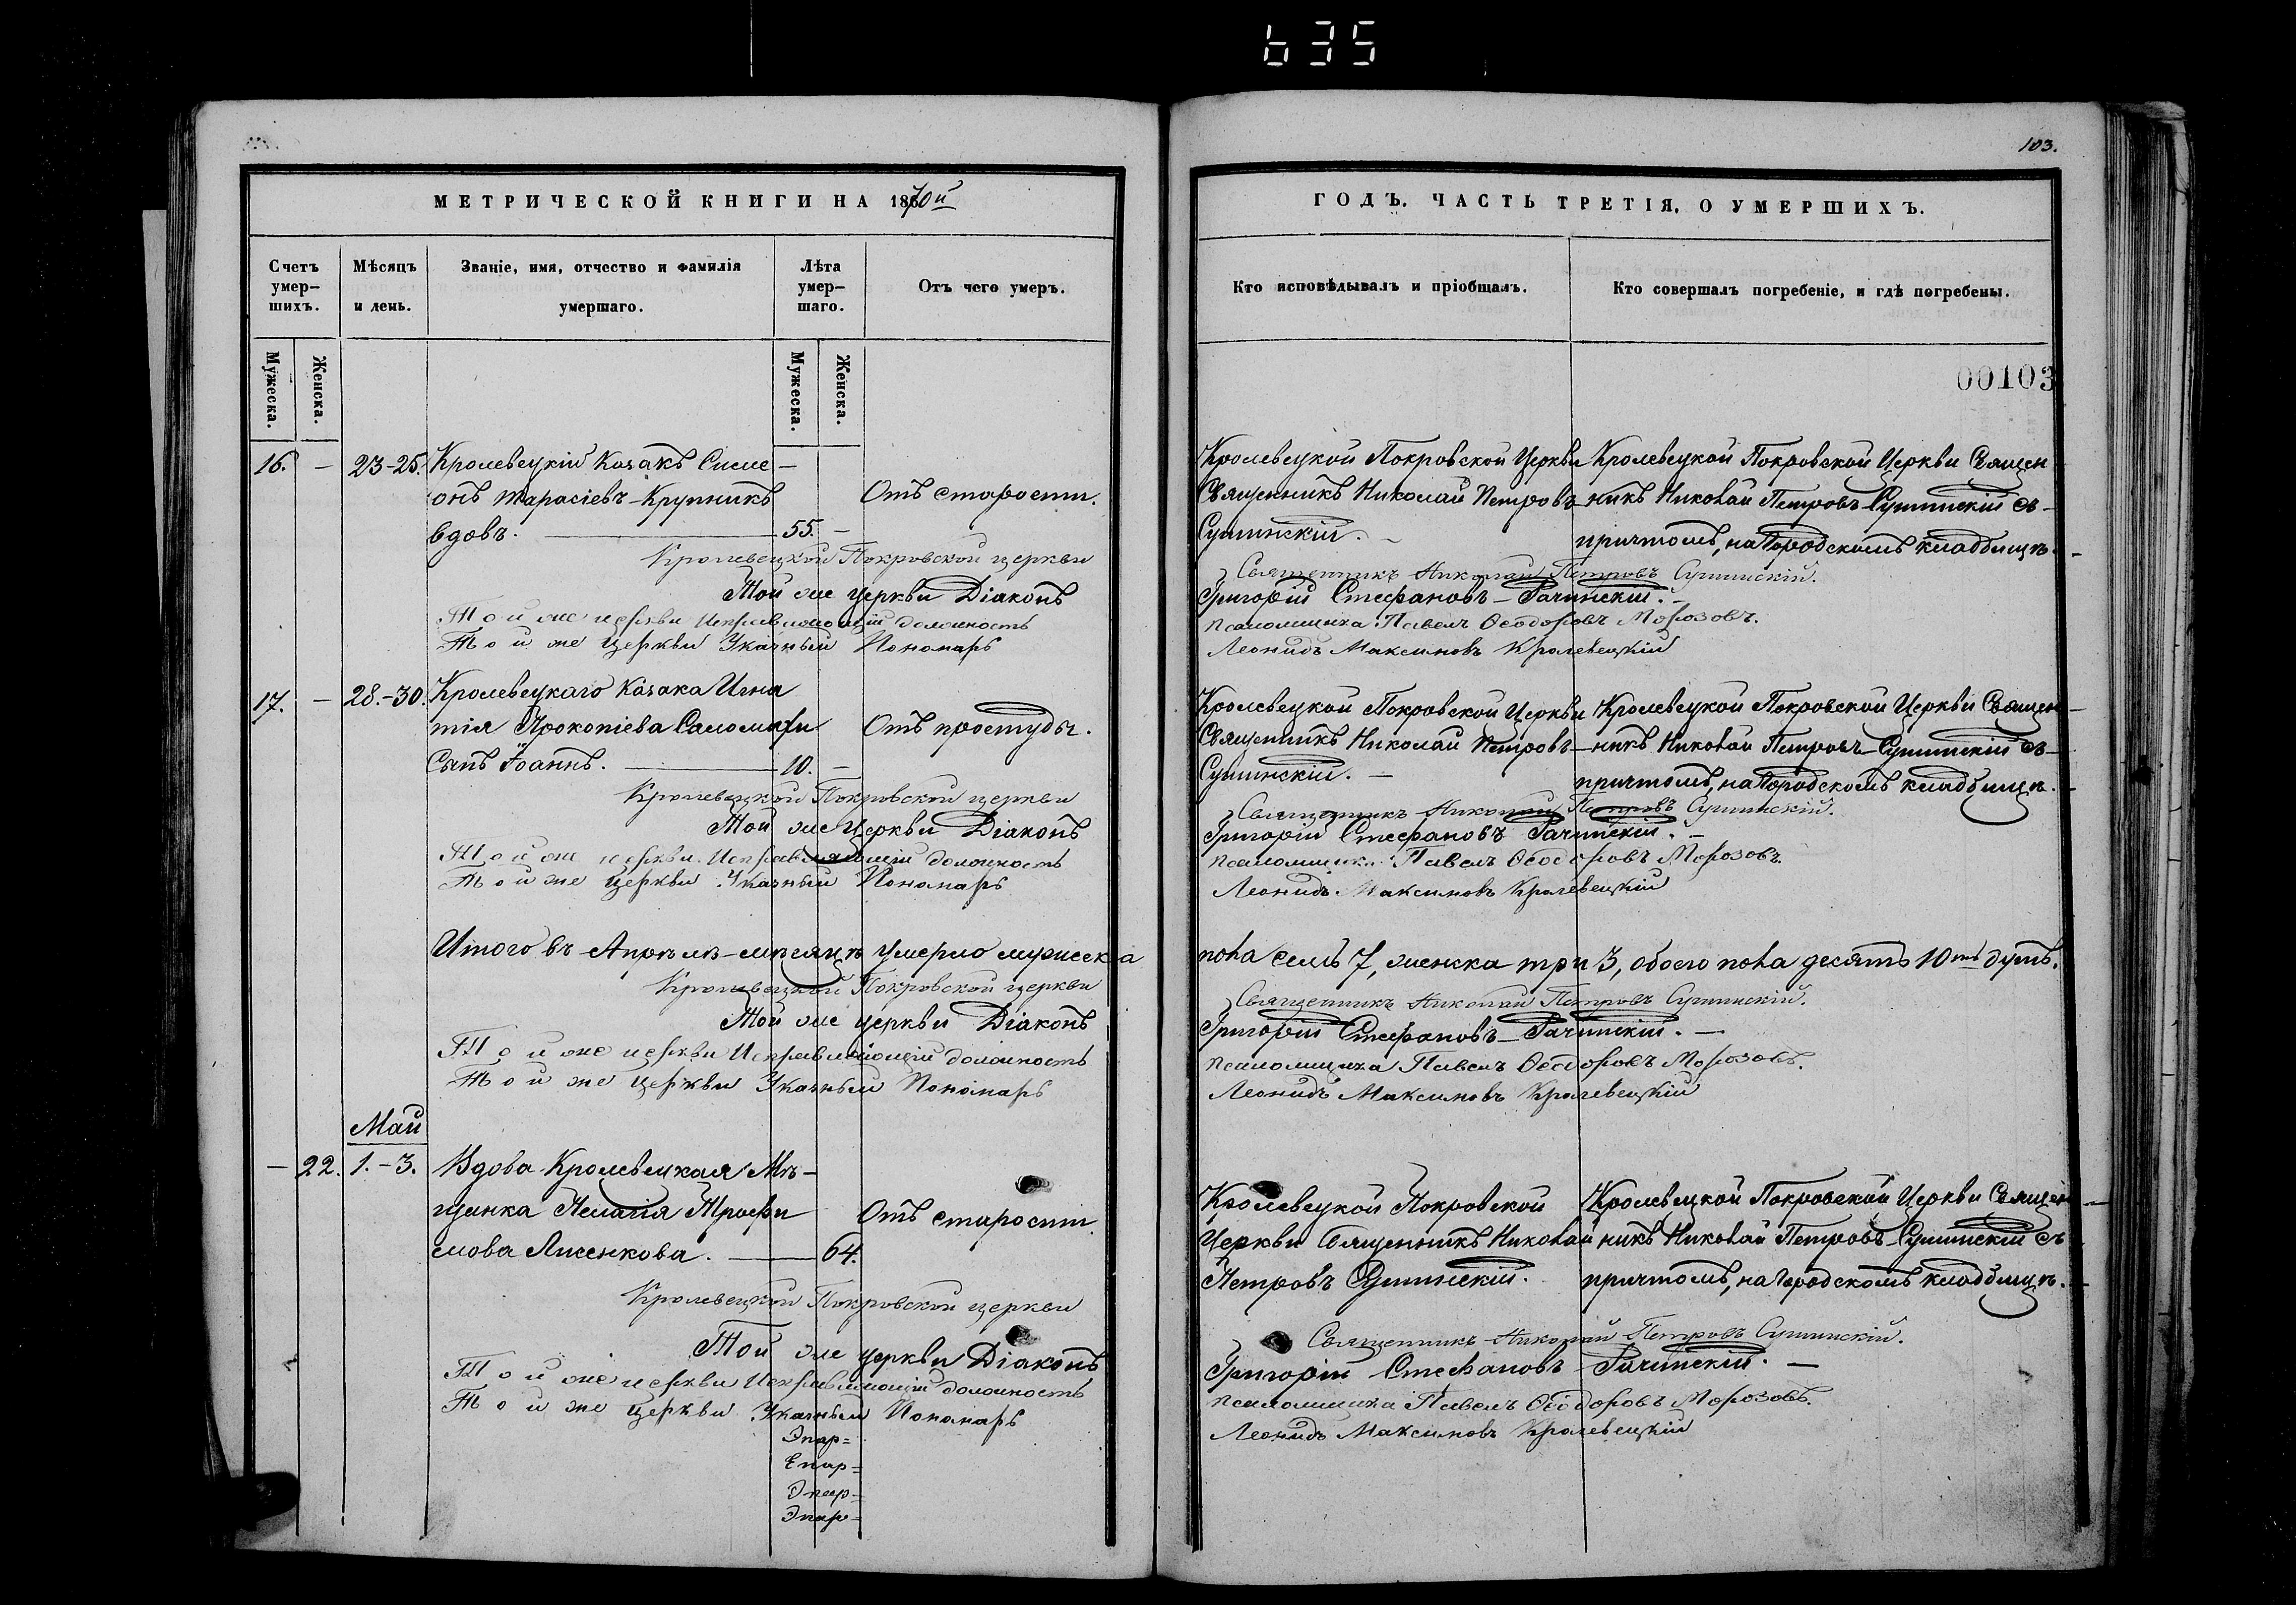 635
103.
МЕТРИЧЕСКОЙ КНИГИ НА 1870й
ГОДЪ. ЧАСТЬ ТРЕТІЯ, О УМЕРШИХЪ.
Счетъ умер-шихъ.
Мѣсяцъ и день.
Званіе, имя, отчество и фамилія умершаго.
Лѣта умер-шаго.
Отъ чего умеръ.
Кто исповѣдывалъ и пріобщалъ.
Кто совершалъ погребеніе, и гдѣ погребены.
Мужеска.
Женска.
Мужеска.
Женска.
00103
16. — 23-25. Кролевецкій Козакъ Симе-
онъ Тарасіевъ Крупникъ
вдовъ. — 55. —
Отъ старости.
Кролевецкой Покровской Церкви
Священникъ Николай Петровъ
Сушинскій.
Кролевецкой Покровской Церкви Священ-
никъ Николай Петровъ Сушинскій съ
причтомъ, на Городскомъ кладбищѣ.
Кролевецкой Покровской церкви Священникъ Николай Петровъ Сушинскій.
Той же церкви Діаконъ Григорій Стефановъ Рачинскій.
Той же церкви Исправляющій должность псаломщика Павелъ Ѳеодоровъ Морозовъ.
Той же Церкви Указный Пономарь Леонидъ Максимовъ Кролевецкій
17. — 28.-30. Кролевецкаго Козака Игна
тія Прокопіева Саломахи
Сынъ Іоаннъ. — 10. —
Отъ простуды.
Кролевецкой Покровской Церкви
Священникъ Николай Петровъ
Сушинскій. —
Кролевецкой Покровской Церкви Священ-
никъ Николай Петровъ Сушинскій съ
причтомъ, на Городскомъ кладбищѣ.
Кролевецкой Покровской церкви Священникъ Николай Петровъ Сушинскій.
Той же Церкви Діаконъ Григорій Стефановъ Рачинскій. —
Той же церкви Исправляющій должность псаломщика Павелъ Ѳеодоровъ Морозовъ.
Той же Церкви Указный Пономарь Леонидъ Максимовъ Кролевецкій
Итого въ Апрѣлѣ мѣсяцѣ умерло мужеска пола семь 7, женска три 3, обоего пола десять 10ть душъ.
Кролевецкой Покровской церкви Священникъ Николай Петровъ Сушинскій.
Той же церкви Діаконъ Григорій Стефановъ Рачинскій. —
Той же церкви Исправляющій должность псаломщика Павелъ Ѳеодоровъ Морозовъ.
Той же Церкви Указный Пономарь Леонидъ Максимовъ Кролевецкій
Май
— 22. 1.-3. Вдова Кролевецкая Мѣ-
щанка Пелагія Трофи
мова Лисенкова. — 64.
Отъ старости
Кролевецкой Покровской
Церкви Священникъ Николай
Петровъ Сушинскій.
Кролевецкой Покровской Церкви Священ-
никъ Николай Петровъ Сушинскій съ
причтомъ, на Городскомъ кладбищѣ.
Кролевецкой Покровской церкви Священникъ Николай Петровъ Сушинскій.
Той же церкви Діаконъ Григорій Стефановъ Рачинскій. —
Той же церкви Исправляющій должность псаломщика Павелъ Ѳеодоровъ Морозовъ.
Той же Церкви Указный Пономарь Леонидъ Максимовъ Кролевецкій